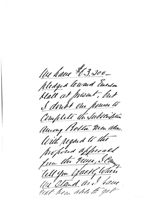 We have $13,200—
pledged toward Emerson
Hall at present, but
I doubt our power to
complete the subscription
among Boston men alone.
With regard to the
proposed approval
from the
tell you exactly where
we stand, as I have
not been able to get